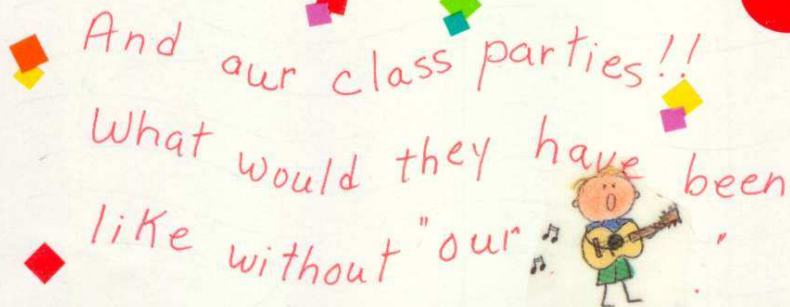 And aur class parties!!
What would they have been
like without "our ".